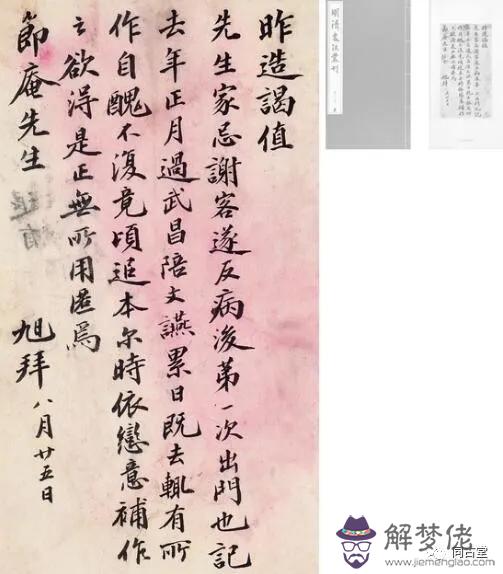 昨造謁值
先生家忌謝客遂反病後第一次出門也記
去年正月過武昌陪文讌累日既去輒有所
作自醜不復竟頃追本尔時依戀意補作
之欲得是正無所用匿焉
節庵先生
旭拜八月廿五日
明清書法叢刊
解梦佬
www.jiemenglao.com
同古堂